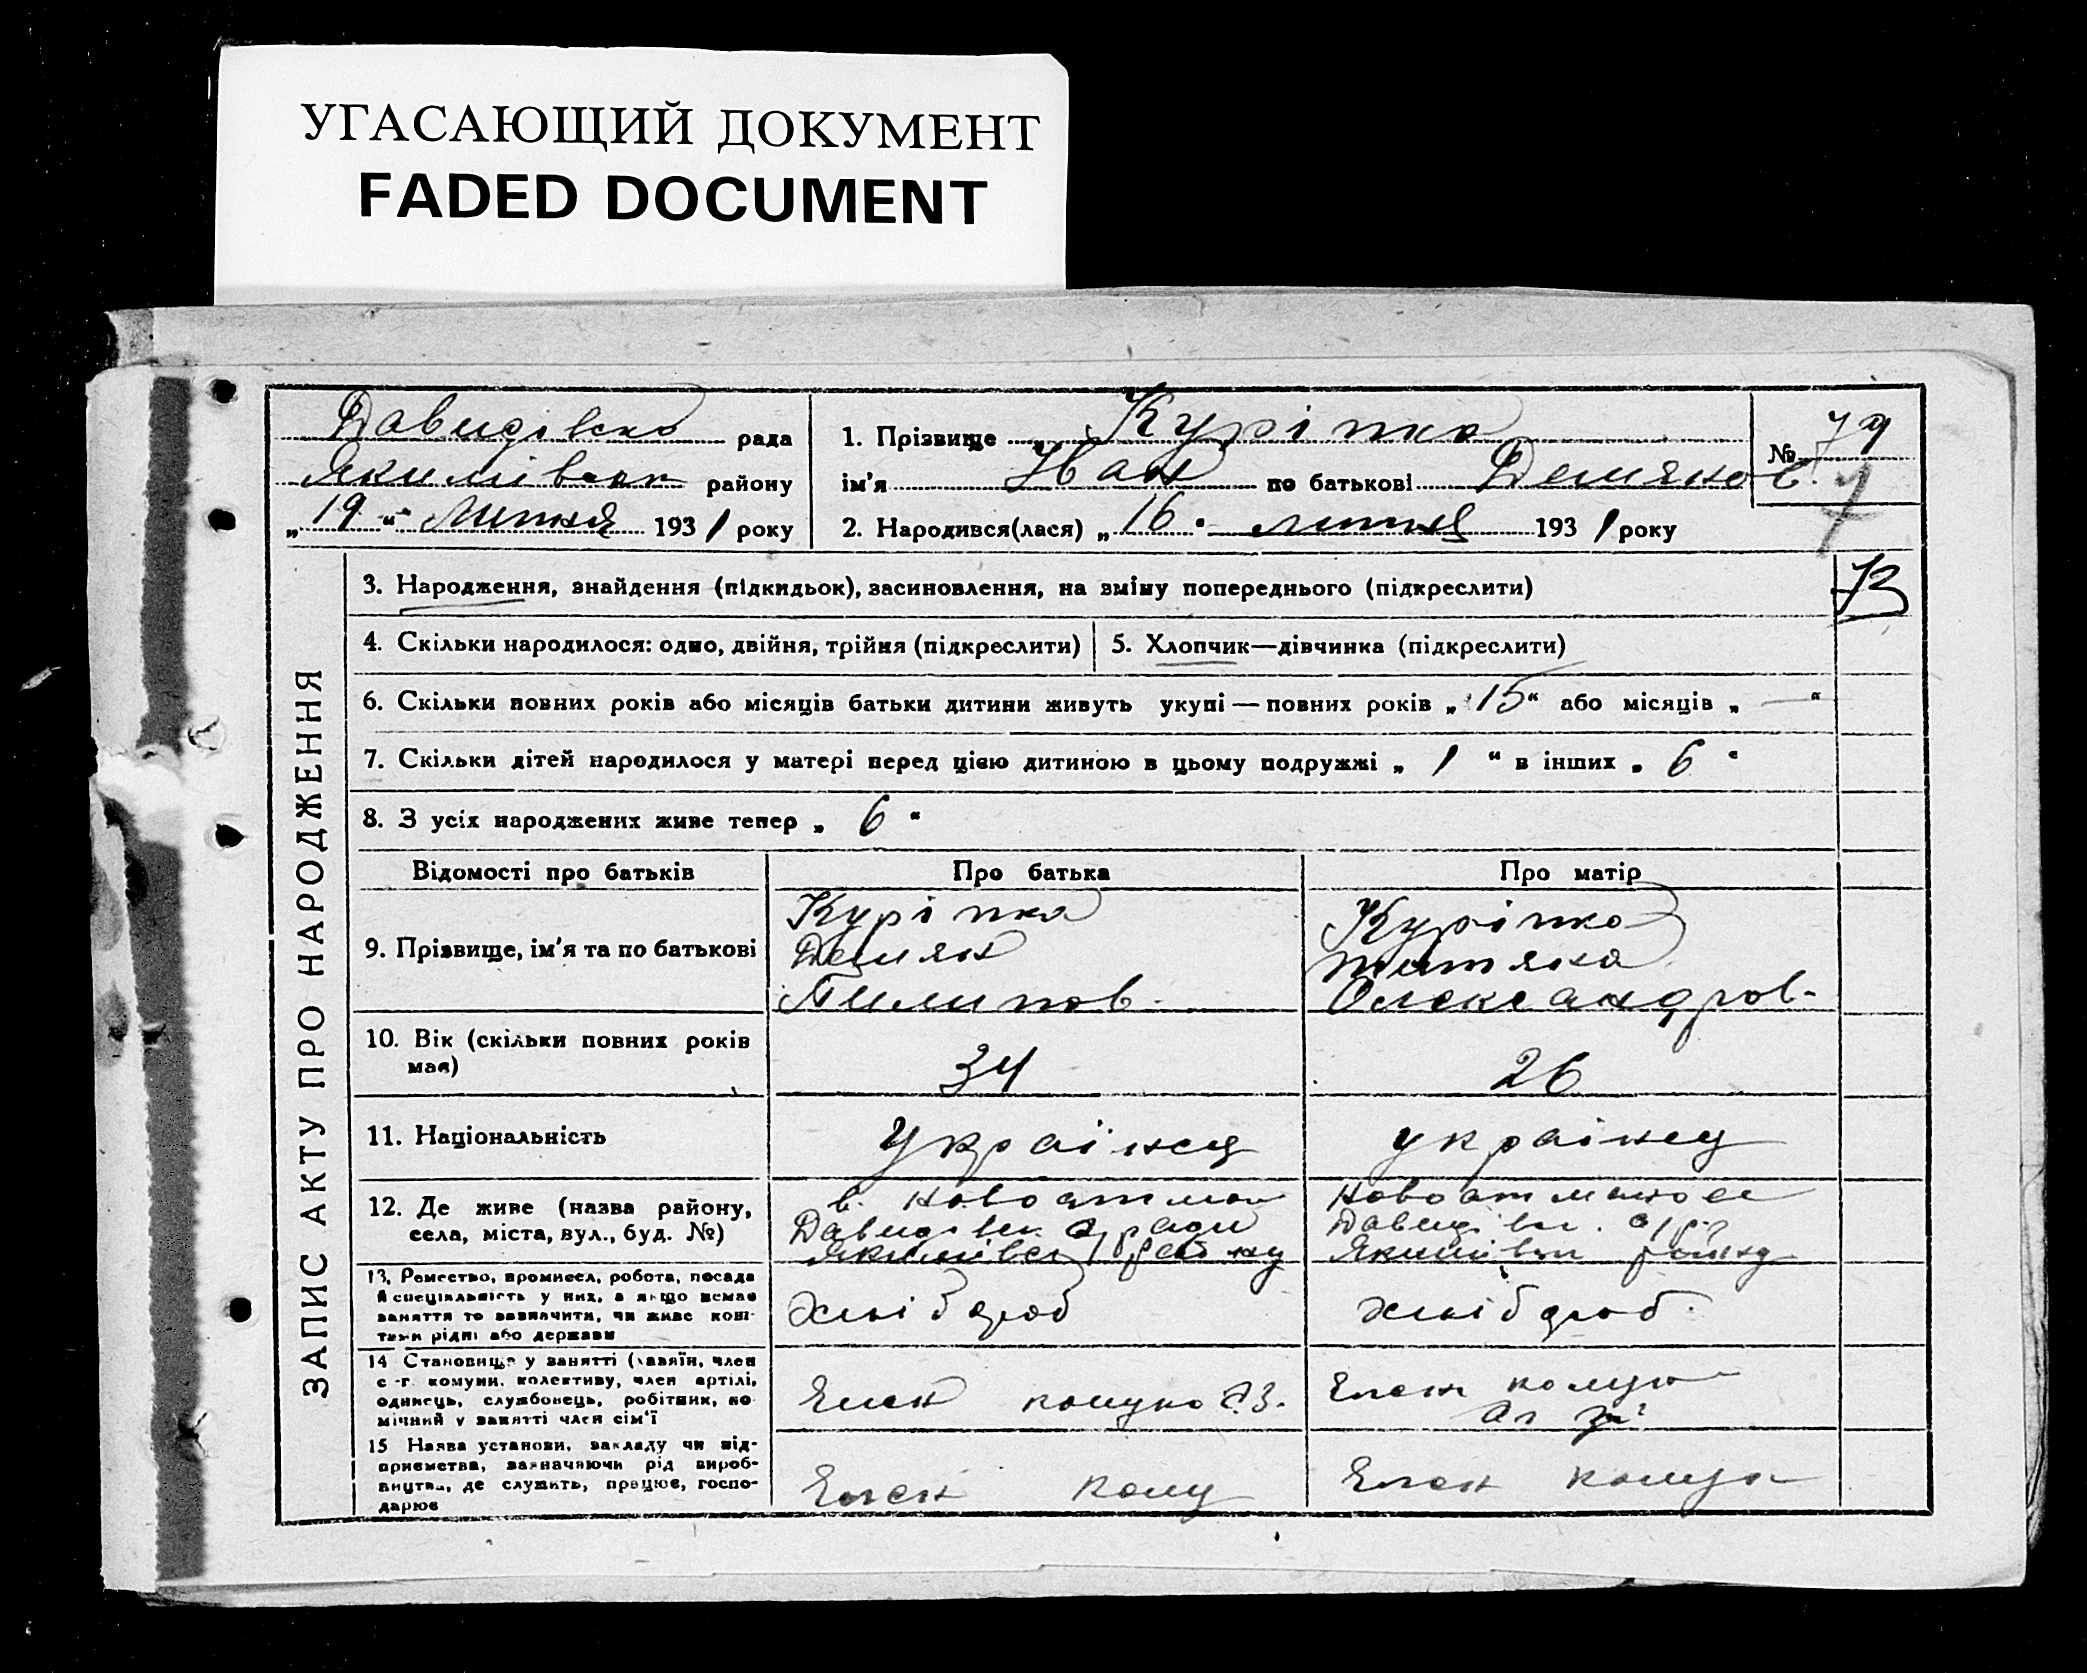 УГАСАЮЩИЙ ДОКУМЕНТ
FADED DOCUMENT
Давидівсько рада
Якимівськ району
„19“ Липня 1931 року
1. Прізвище Куріпка
ім'я Иван по батькові Демянов.
2. Народився(лася) „16“ липня 1931 року
№ 79
73
ЗАПИС АКТУ ПРО НАРОДЖЕННЯ
3. Народження, знайдення (підкидьок), засиновлення, на зміну попереднього (підкреслити)
4. Скільки народилося: одно, двійня, трійня (підкреслити)
5. Хлопчик—дівчинка (підкреслити)
6. Скільки повних років або місяців батьки дитини живуть укупі — повних років „15“ або місяців „—“
7. Скільки дітей народилося у матері перед цією дитиною в цьому подружжі „1“ в інших „6“
8. З усіх народжених живе тепер „6“
Відомості про батьків
Про батька
Про матір
9. Прізвище, ім'я та по батькові
Куріпка
Демян
Пилипов.
Куріпка
Олександров.
10. Вік (скільки повних років
має)
34
26
11. Національність
Українец
украінец
12. Де живе (назва району,
села, міста, вул., буд. №)
Давидівск. с/ради
Якимівск району
Давидівск. с/р.
Якимівск району
13. Ремество, промисел, робота, посада
й спеціяльність у них, а якщо немає
заняття то зазначити, чи живе кош-
тами рідні або держави
Хлібороб
хлібороб.
14 Становище у занятті (хазяїн, член
с.-г. комуни, колективу, член артілі,
одинець, службовець, робітник, по-
мічний у занятті член сім'ї
Член
Член
15 Назва установи, закладу чи під-
приємства, зазначаючи рід вироб-
ництва, де служить, працює, госпо-
дарює
Член кому
Член комун